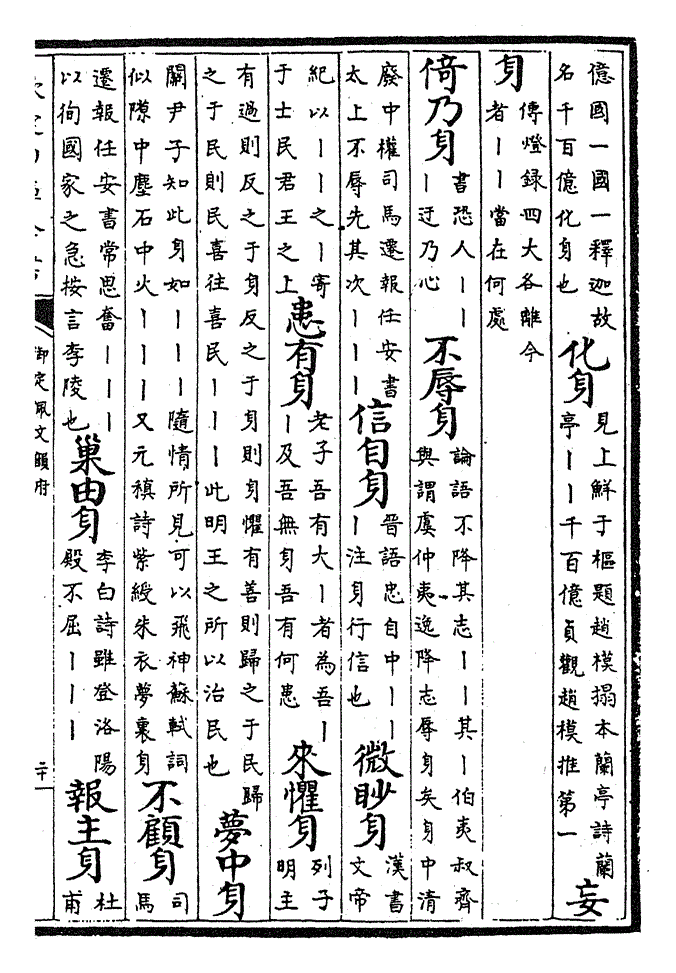 億國一國一釋迦故
名千百億化身也
化身
見上鮮于樞題趙模搨本蘭亭詩蘭
亭丨丨千百億貞觀趙模推第一
妄
身
傳燈録四大各離今
者丨丨當在何處
倚乃身
書恐人丨丨
丨迂乃心
不辱身
論語不降其志丨丨其丨伯夷叔齊
與謂虞仲夷逸降志辱身矣身中清
廢中權司馬遷報任安書
太上不辱先其次丨丨丨
信自身
晉語忠自中丨丨
丨注身行信也
微眇身
漢書
文帝
紀以丨丨之丨寄
于士民君王之上
患有身
老子吾有大丨者為吾丨
丨及吾無身吾有何患
來懼身
列子
明主
有過則反之于身反之于身則身懼有善則歸之于民歸
之于民則民喜往喜民丨丨丨此明王之所以治民也
夢中身
關尹子知此身如丨丨丨隨情所見可以飛神蘇軾詞
似隙中塵石中火丨丨丨又元稹詩紫綬朱衣夢裏身
不顧身
司
馬
遷報任安書常思奮丨丨丨
以徇國家之急按言李陵也
巢由身
李白詩雖登洛陽
殿不屈丨丨丨
報主身
杜
甫
御定佩文韻府